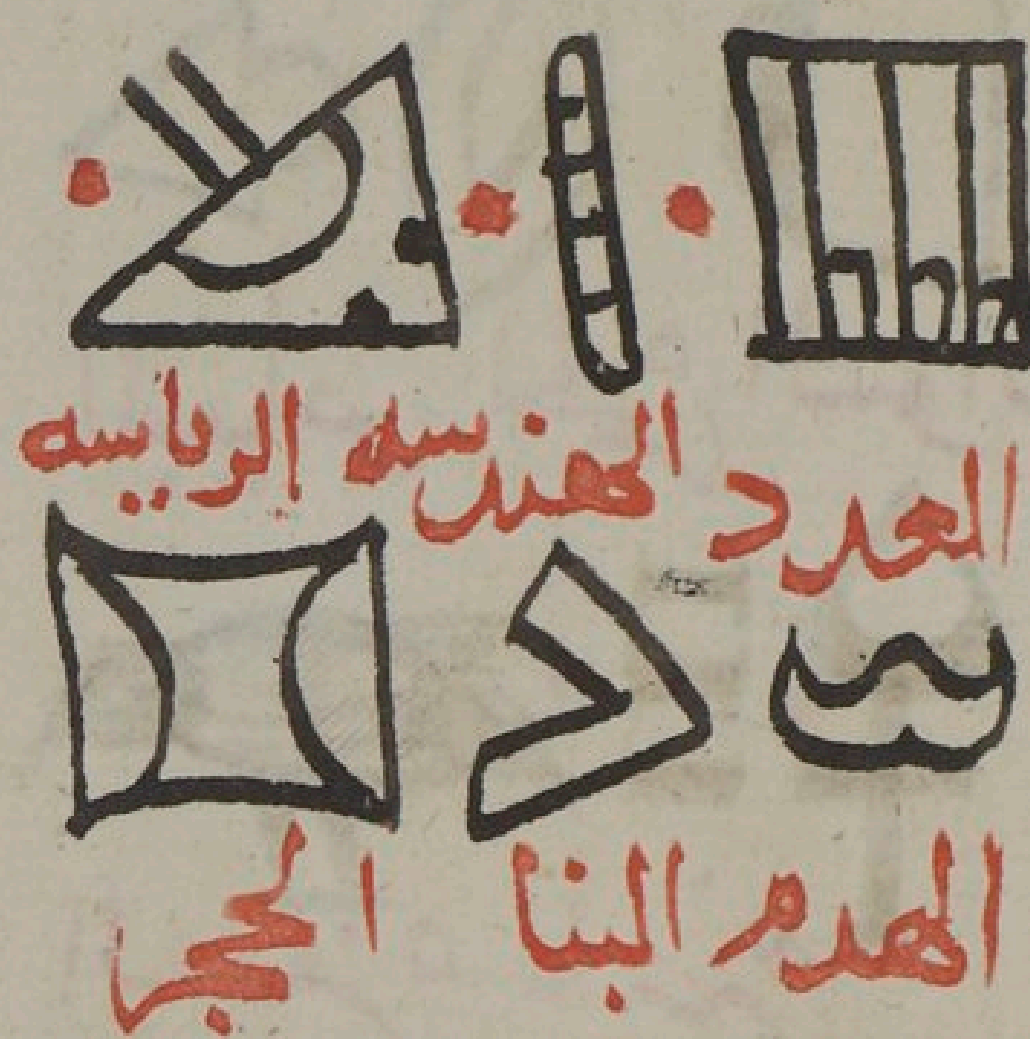 العدد الهندسه الرياسه
الهدم البنا الحجر